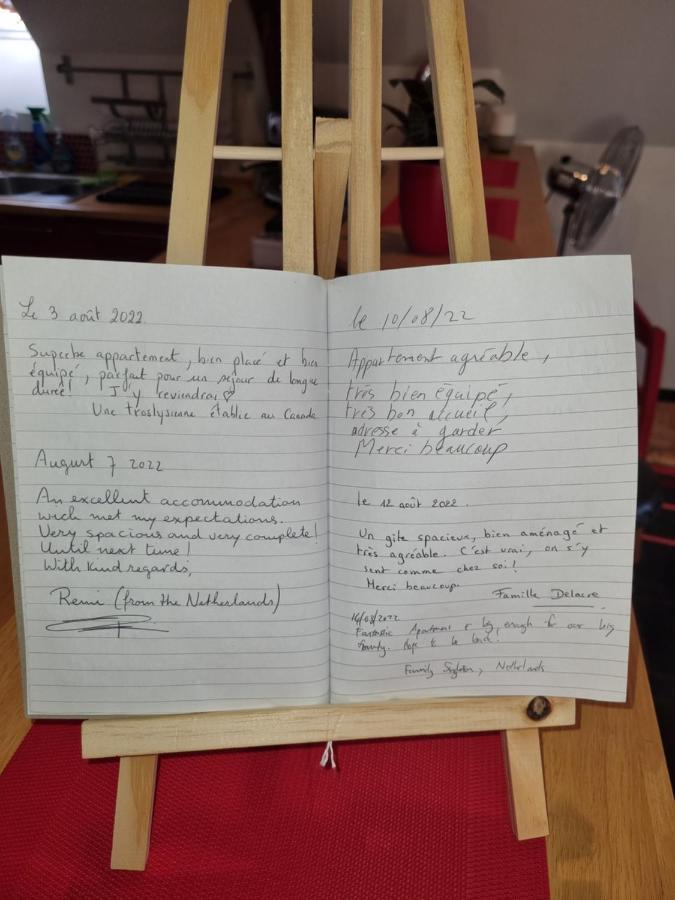 Le 3 août 2022.
Superbe appartement, bien placé et bien
équipé, parfait pour un séjour de longue
durée! J'y reviendrai ♡
Une troslysienne établie au Canada
August 7 2022
An excellent accommodation
wich met my expectations.
Very spacious and very complete!
Until next time!
With kind regards,
Remi (from the Netherlands)
le 10/08/22
Appartement agréable,
très bien équipé,
très bon accueil,
adresse à garder
Merci beaucoup
le 12 août 2022.
Un gite spacieux, bien aménagé et
très agréable. C'est vrai, on s'y
sent comme chez soi!
Merci beaucoup.
Famille Delacre
16/08/2022
Fantastic Apartment & big enough for our big
family. Hope to be back!
Family, Netherlands